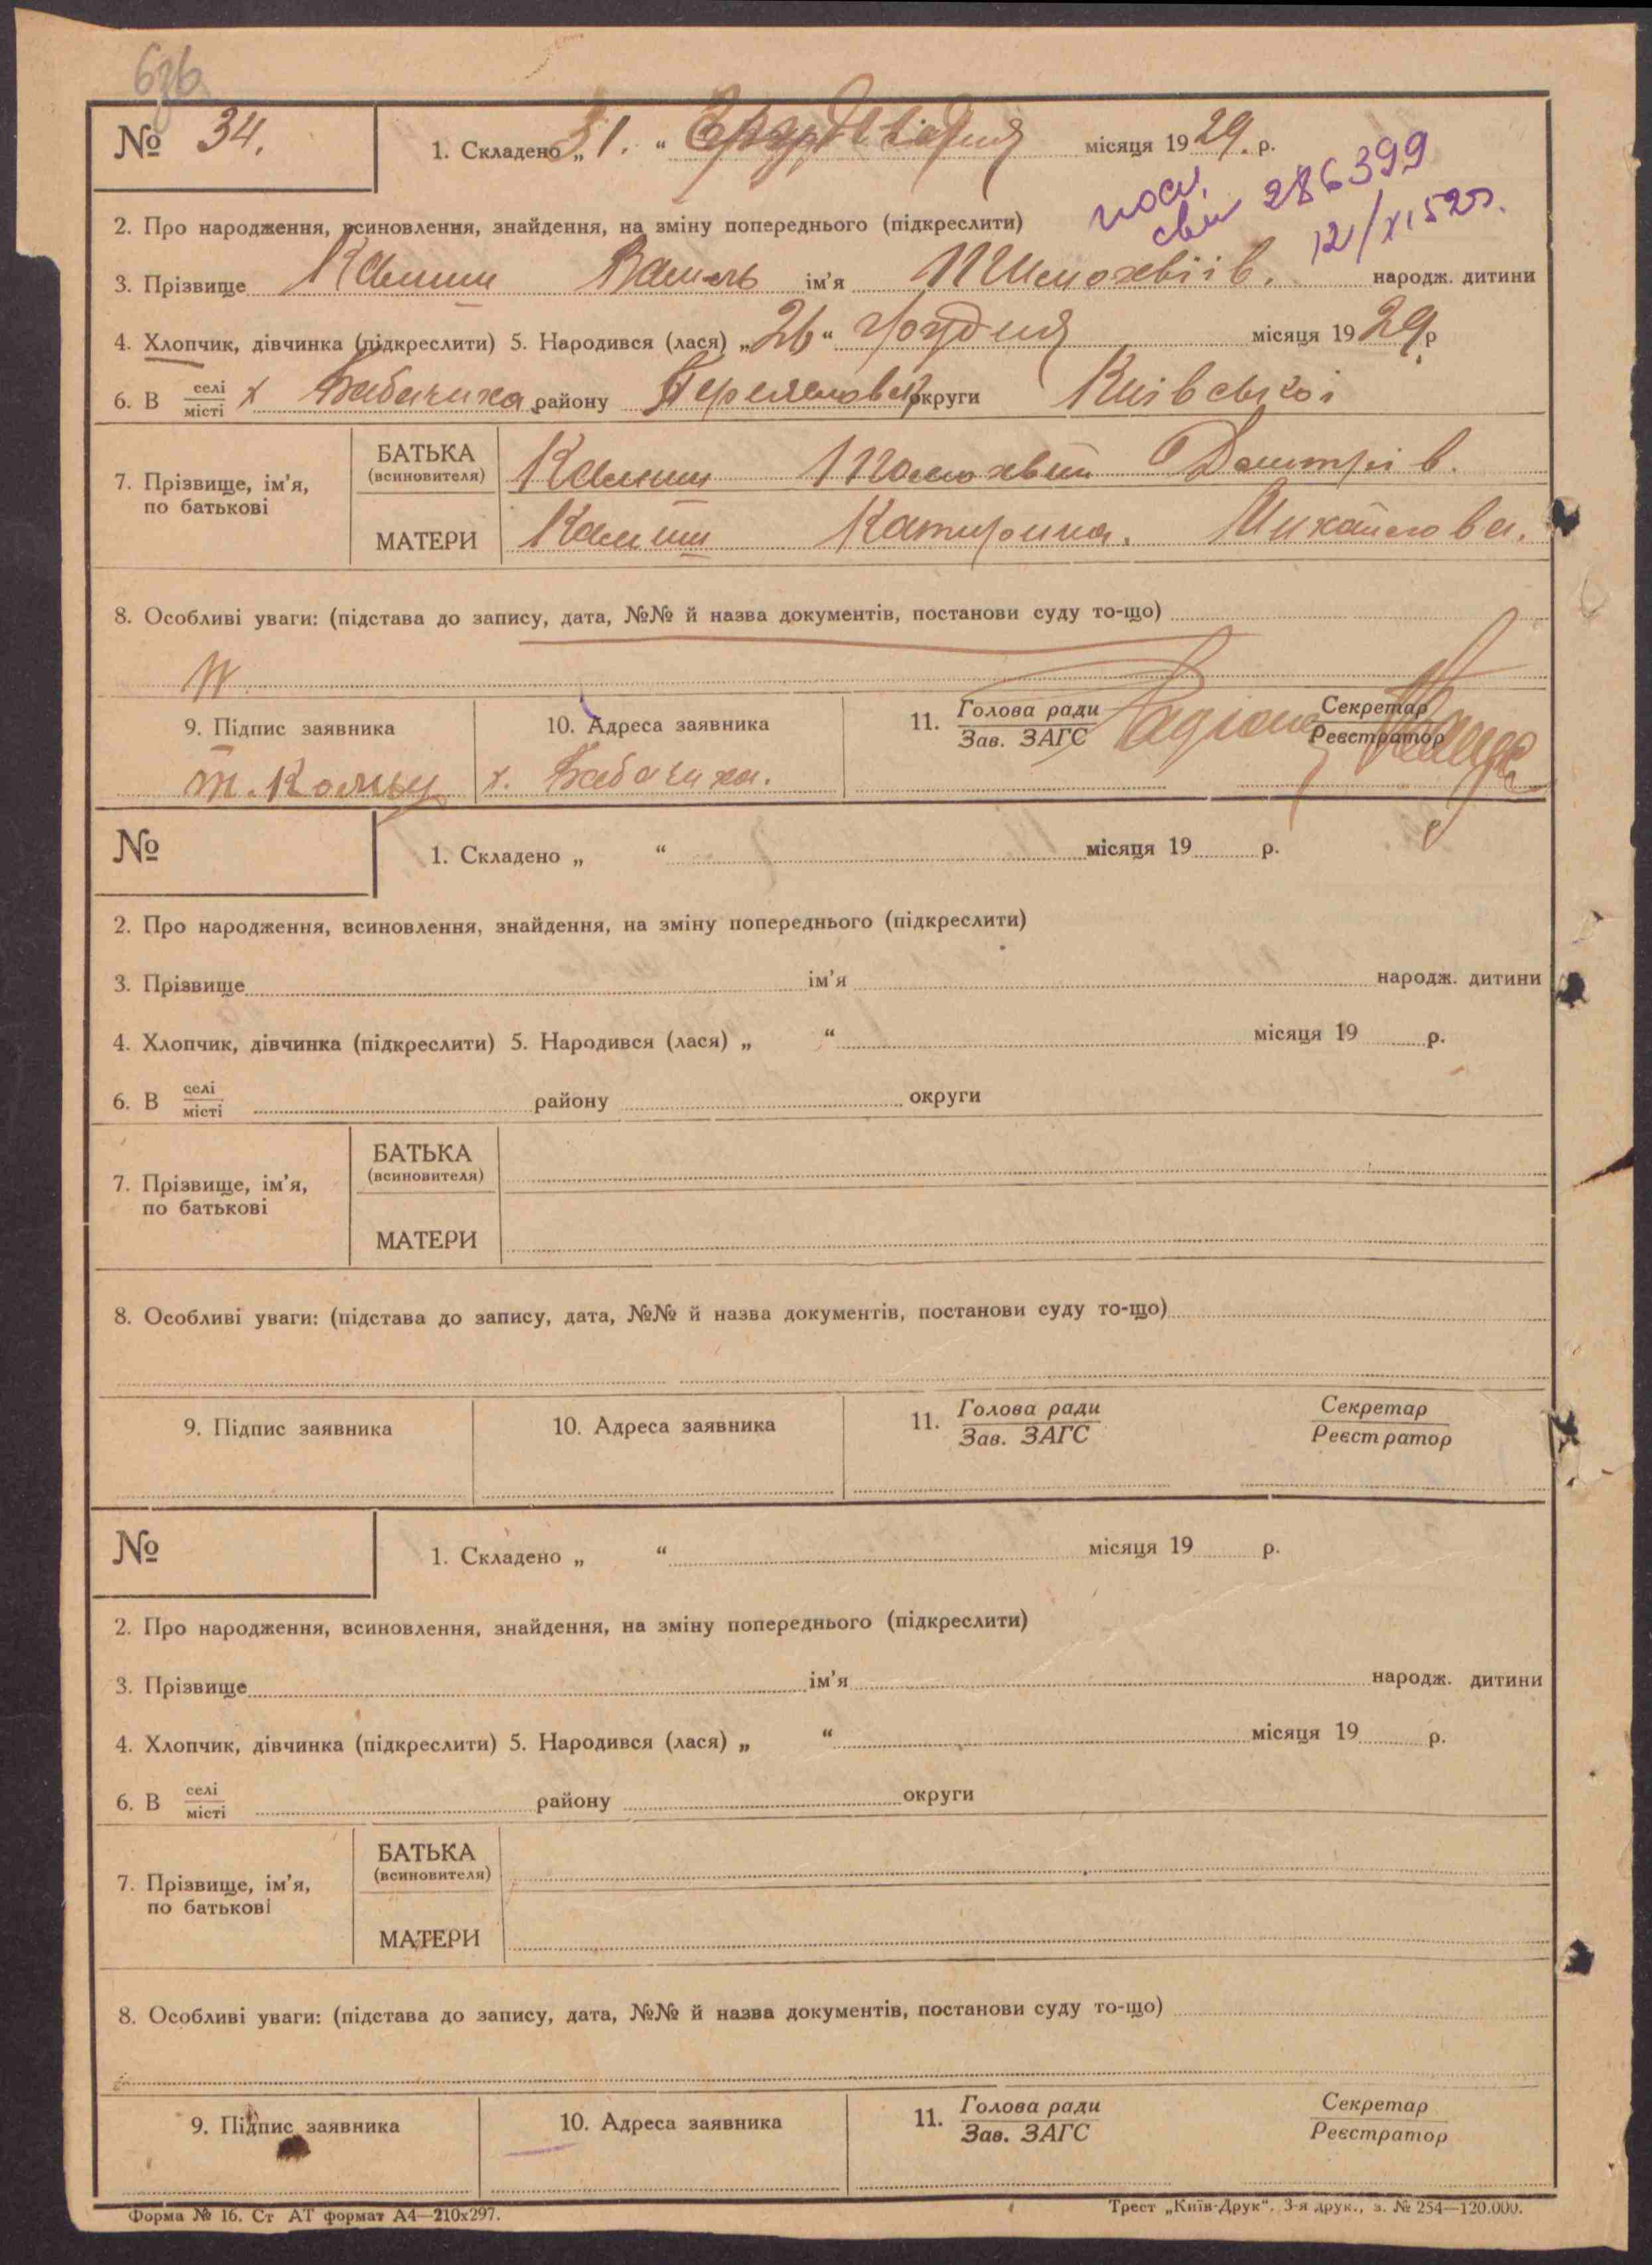 № 34.
1. Складено „31.“ Грудня місяця 1929. р.
286399
12/XI 52 г.
2. Про народження, всиновлення, знайдення, на зміну попереднього (підкреслити)
3. Прізвище Василь ім'я народж. дитини
4. Хлопчик, дівчинка (підкреслити) 5. Народився (лася) „26“ грудня місяця 1929 р
6. В селі/місті х Бабачиха району Переяславск округи Київської
7. Прізвище, ім'я, по батькові
БАТЬКА (всиновителя)
МАТЕРИ Катирина. Михайлова.
8. Особливі уваги: (підстава до запису, дата, №№ й назва документів, постанови суду то-що)
9. Підпис заявника
10. Адреса заявника
11. Голова ради/Зав. ЗАГС
Секретар/Реєстратор
х. Бабачиха.
№
1. Складено „ “ місяця 19 р.
2. Про народження, всиновлення, знайдення, на зміну попереднього (підкреслити)
3. Прізвище ім'я народж. дитини
4. Хлопчик, дівчинка (підкреслити) 5. Народився (лася) „ “ місяця 19 р.
6. В селі/місті району округи
7. Прізвище, ім'я, по батькові
БАТЬКА (всиновителя)
МАТЕРИ
8. Особливі уваги: (підстава до запису, дата, №№ й назва документів, постанови суду то-що)
9. Підпис заявника
10. Адреса заявника
11. Голова ради/Зав. ЗАГС
Секретар/Реєстратор
№
1. Складено „ “ місяця 19 р.
2. Про народження, всиновлення, знайдення, на зміну попереднього (підкреслити)
3. Прізвище ім'я народж. дитини
4. Хлопчик, дівчинка (підкреслити) 5. Народився (лася) „ “ місяця 19 р.
6. В селі/місті району округи
7. Прізвище, ім'я, по батькові
БАТЬКА (всиновителя)
МАТЕРИ
8. Особливі уваги: (підстава до запису, дата, №№ й назва документів, постанови суду то-що)
9. Підпис заявника
10. Адреса заявника
11. Голова ради/Зав. ЗАГС
Секретар/Реєстратор
Форма № 16. Ст АТ формат А4—210х297.
Трест „Київ-Друк“. 3-я друк., з. № 254—120.000.